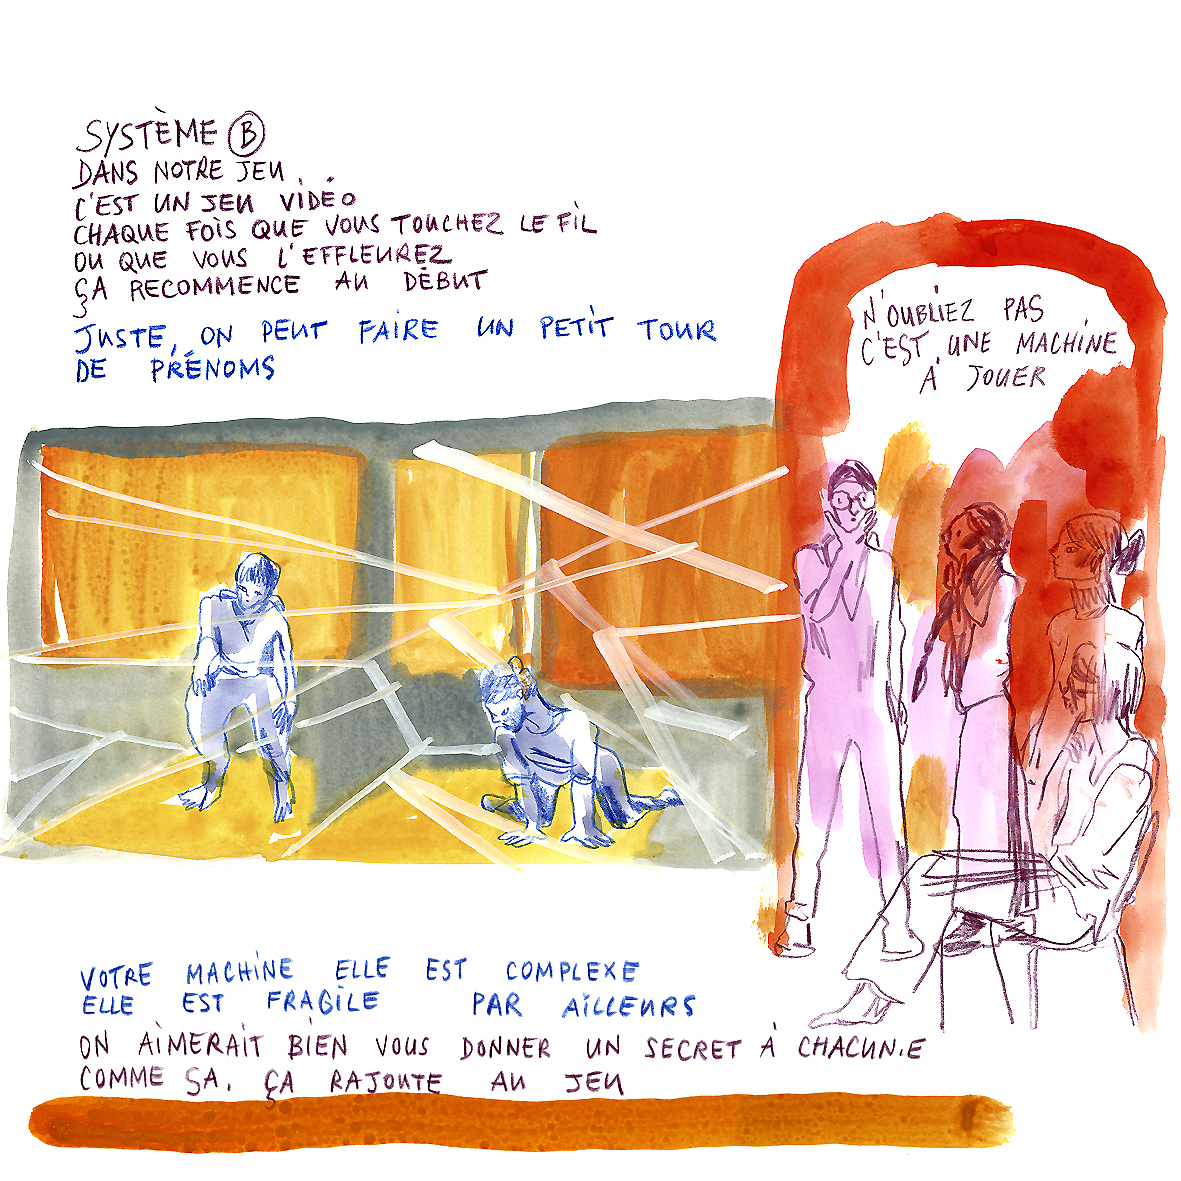 SYSTÈME B
DANS NOTRE JEU,
C'EST UN JEU VIDÉO
CHAQUE FOIS QUE VOUS TOUCHEZ LE FIL
OU QUE VOUS L'EFFLEUREZ
ÇA RECOMMENCE AU DÉBUT
JUSTE, ON PEUT FAIRE UN PETIT TOUR
DE PRÉNOMS
N'OUBLIEZ PAS
C'EST UNE MACHINE
À JOUER
VOTRE MACHINE ELLE EST COMPLEXE
ELLE EST FRAGILE PAR AILLEURS
ON AIMERAIT BIEN VOUS DONNER UN SECRET À CHACUN.E
COMME ÇA, ÇA RAJOUTE AU JEU